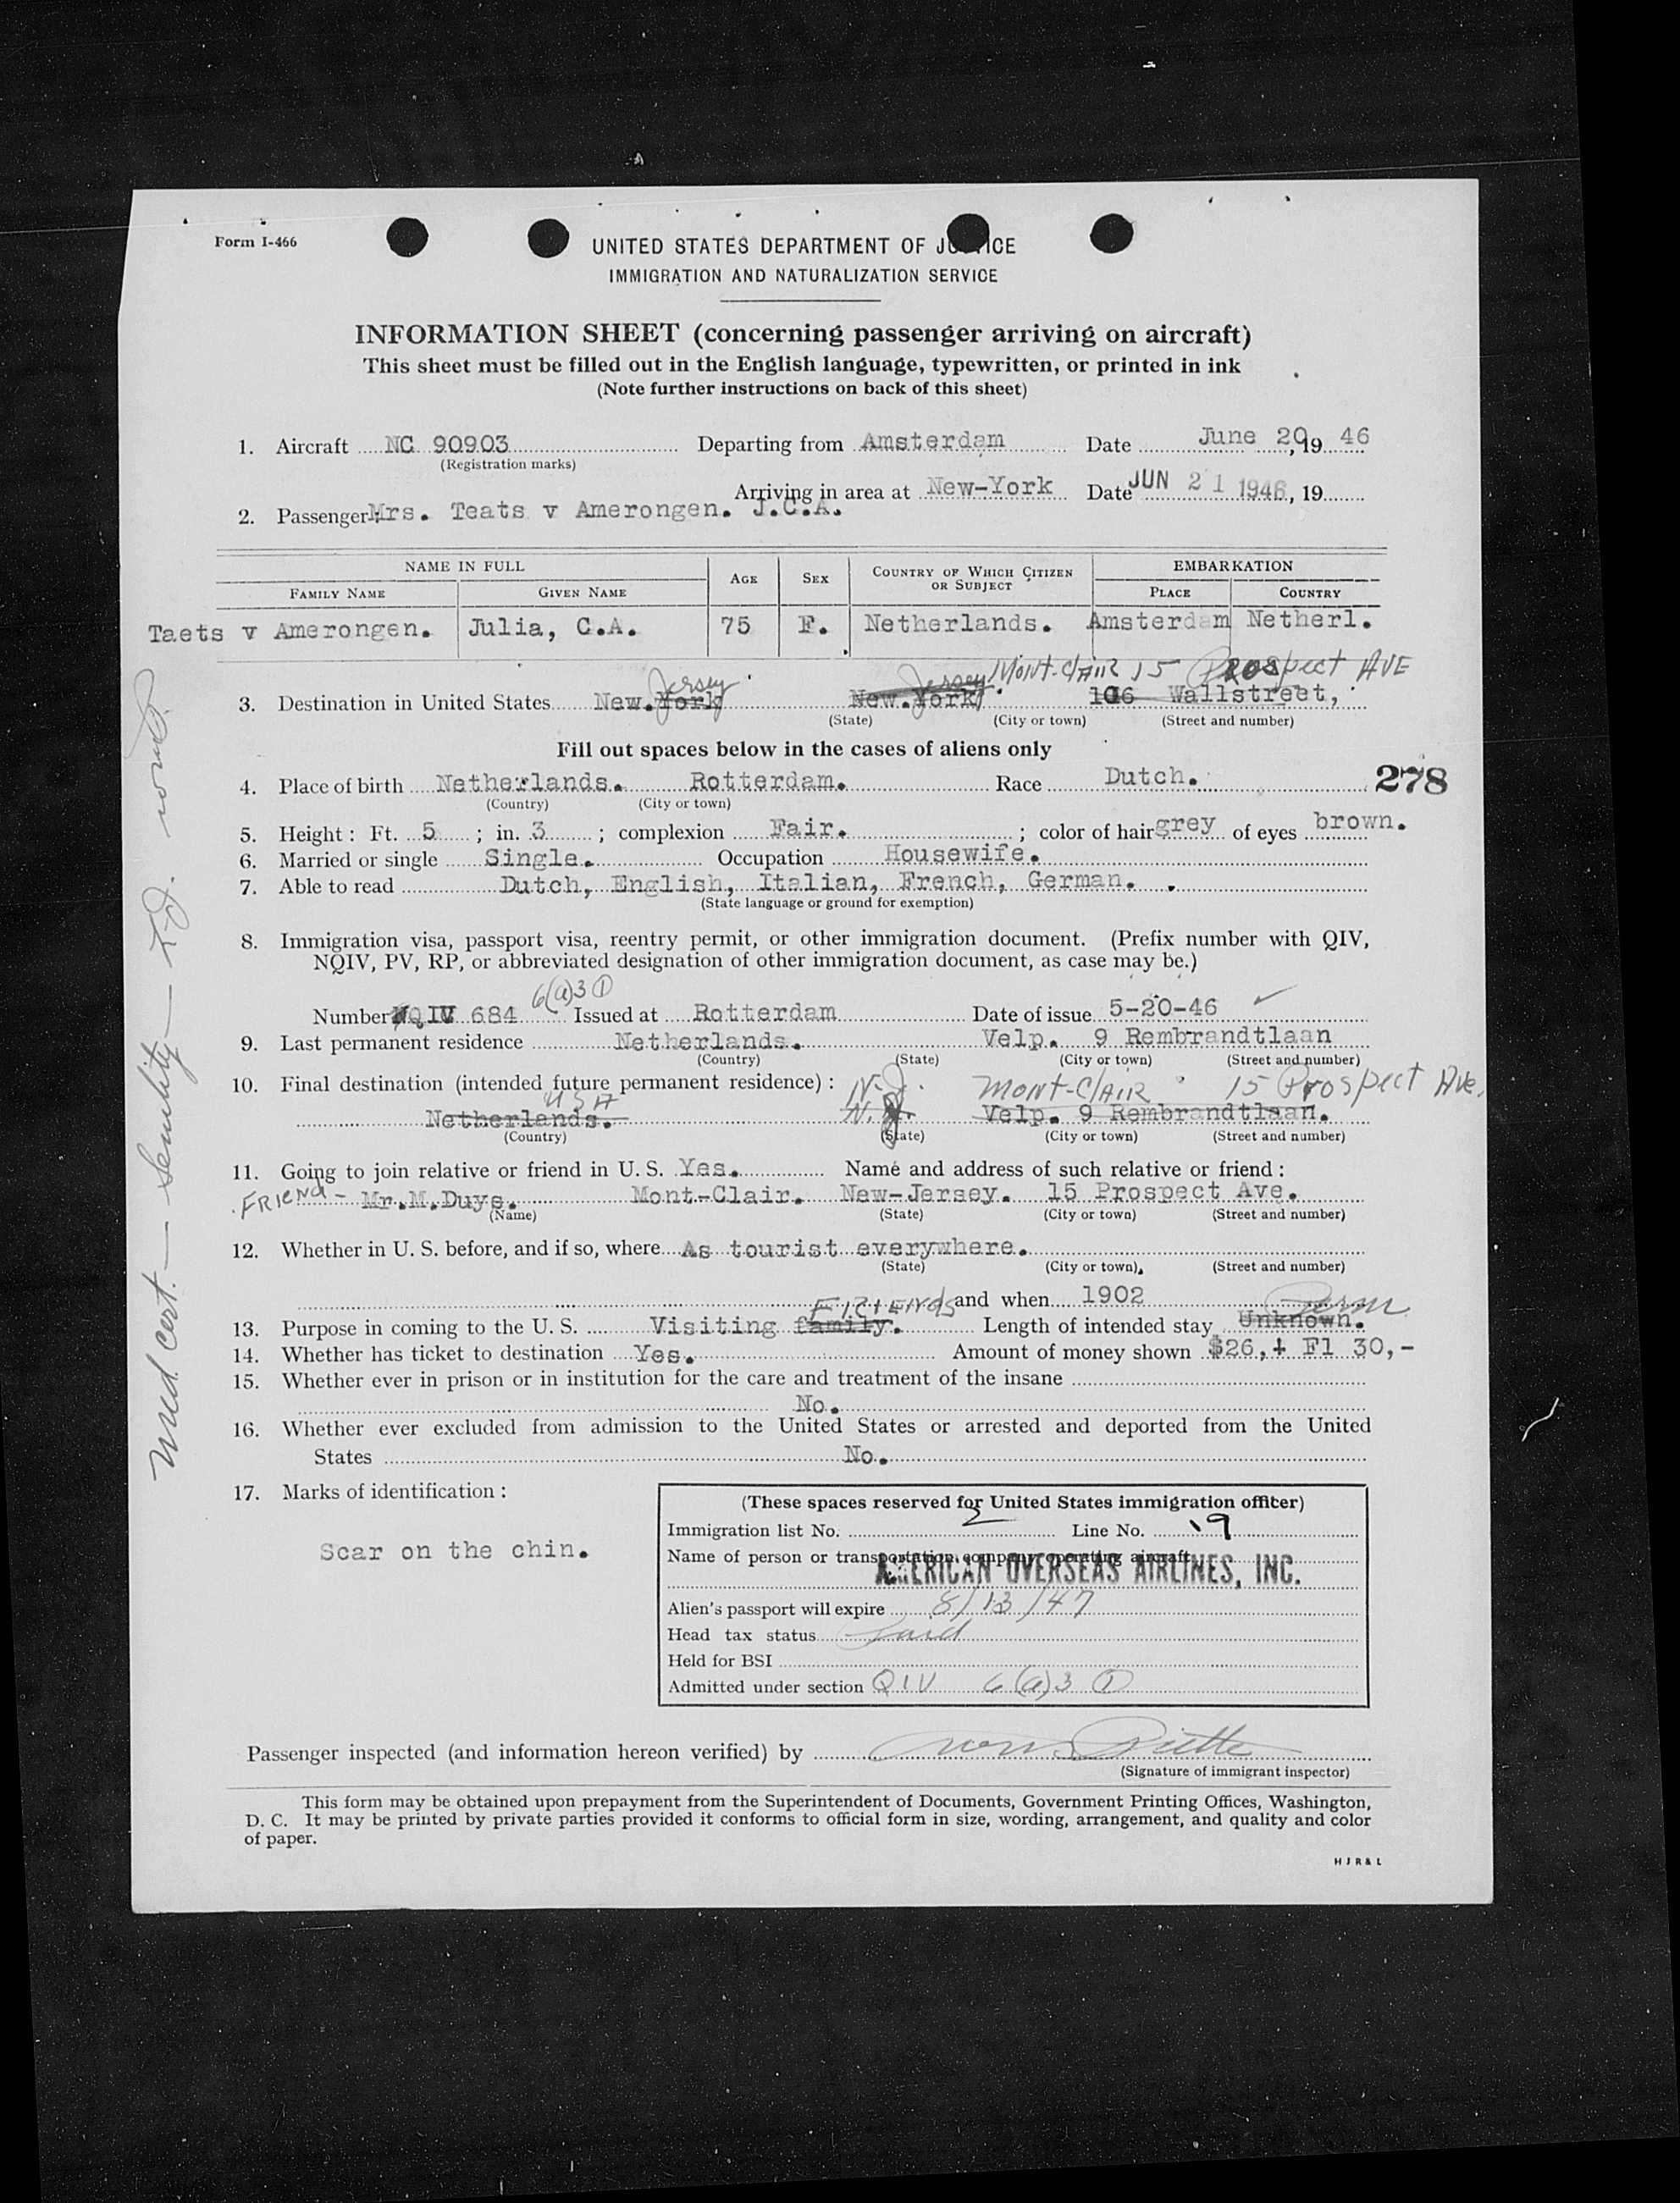 Form I-466
UNITED STATES DEPARTMENT OF JUSTICE
IMMIGRATION AND NATURALIZATION SERVICE
INFORMATION SHEET (concerning passenger arriving on aircraft)
This sheet must be filled out in the English language, typewritten, or printed in ink
(Note further instructions on back of this sheet)
1. Aircraft NC 90903 Departing from Amsterdam Date June 20, 19 46
(Registration marks)
Arriving in area at New-York Date JUN 21 1946, 19
2. Passenger: Mrs. Teats v Amerongen. J.C.A.
NAME IN FULL AGE SEX COUNTRY OF WHICH CITIZEN OR SUBJECT EMBARKATION
FAMILY NAME GIVEN NAME PLACE COUNTRY
Taets v Amerongen. Julia, C.A. 75 F. Netherlands. Amsterdam Netherl.
Jersey Jersey MONT-CLAIR 15 Prospect AVE
3. Destination in United States New.York New.York 106 Wallstreet,
(State) (City or town) (Street and number)
Fill out spaces below in the cases of aliens only
4. Place of birth Netherlands. Rotterdam. Race Dutch. 278
(Country) (City or town)
5. Height: Ft. 5 ; in. 3 ; complexion Fair. ; color of hair grey of eyes brown.
6. Married or single Single. Occupation Housewife.
7. Able to read Dutch, English, Italian, French, German.
(State language or ground for exemption)
8. Immigration visa, passport visa, reentry permit, or other immigration document. (Prefix number with QIV,
NQIV, PV, RP, or abbreviated designation of other immigration document, as case may be.)
6(a)3 (1)
Number NQIV 684 Issued at Rotterdam Date of issue 5-20-46
9. Last permanent residence Netherlands. Velp. 9 Rembrandtlaan
(Country) (State) (City or town) (Street and number)
10. Final destination (intended future permanent residence): N.J. MONT-CLAIR 15 Prospect Ave.
USA
Netherlands. Velp. 9 Rembrandtlaan.
(Country) (State) (City or town) (Street and number)
11. Going to join relative or friend in U. S. Yes. Name and address of such relative or friend:
FRIEND - Mr.M.Duys. Mont-Clair. New-Jersey. 15 Prospect Ave.
(Name) (State) (City or town) (Street and number)
12. Whether in U. S. before, and if so, where As tourist everywhere.
(State) (City or town), (Street and number)
and when 1902
FRIENDS Perm
13. Purpose in coming to the U. S. Visiting family. Length of intended stay Unknown.
14. Whether has ticket to destination Yes. Amount of money shown $26,+ Fl 30,-
15. Whether ever in prison or in institution for the care and treatment of the insane
No.
16. Whether ever excluded from admission to the United States or arrested and deported from the United
States No.
17. Marks of identification:
Scar on the chin.
(These spaces reserved for United States immigration officer)
Immigration list No. 2 Line No. 19
Name of person or transportation company operating aircraft
AMERICAN OVERSEAS AIRLINES, INC.
Alien's passport will expire 8/13/47
Head tax status Paid
Held for BSI
Admitted under section QIV 6(a)3 (1)
Passenger inspected (and information hereon verified) by
(Signature of immigrant inspector)
This form may be obtained upon prepayment from the Superintendent of Documents, Government Printing Offices, Washington,
D. C. It may be printed by private parties provided it conforms to official form in size, wording, arrangement, and quality and color
of paper.
H J R & L
Med cert. — Senility —